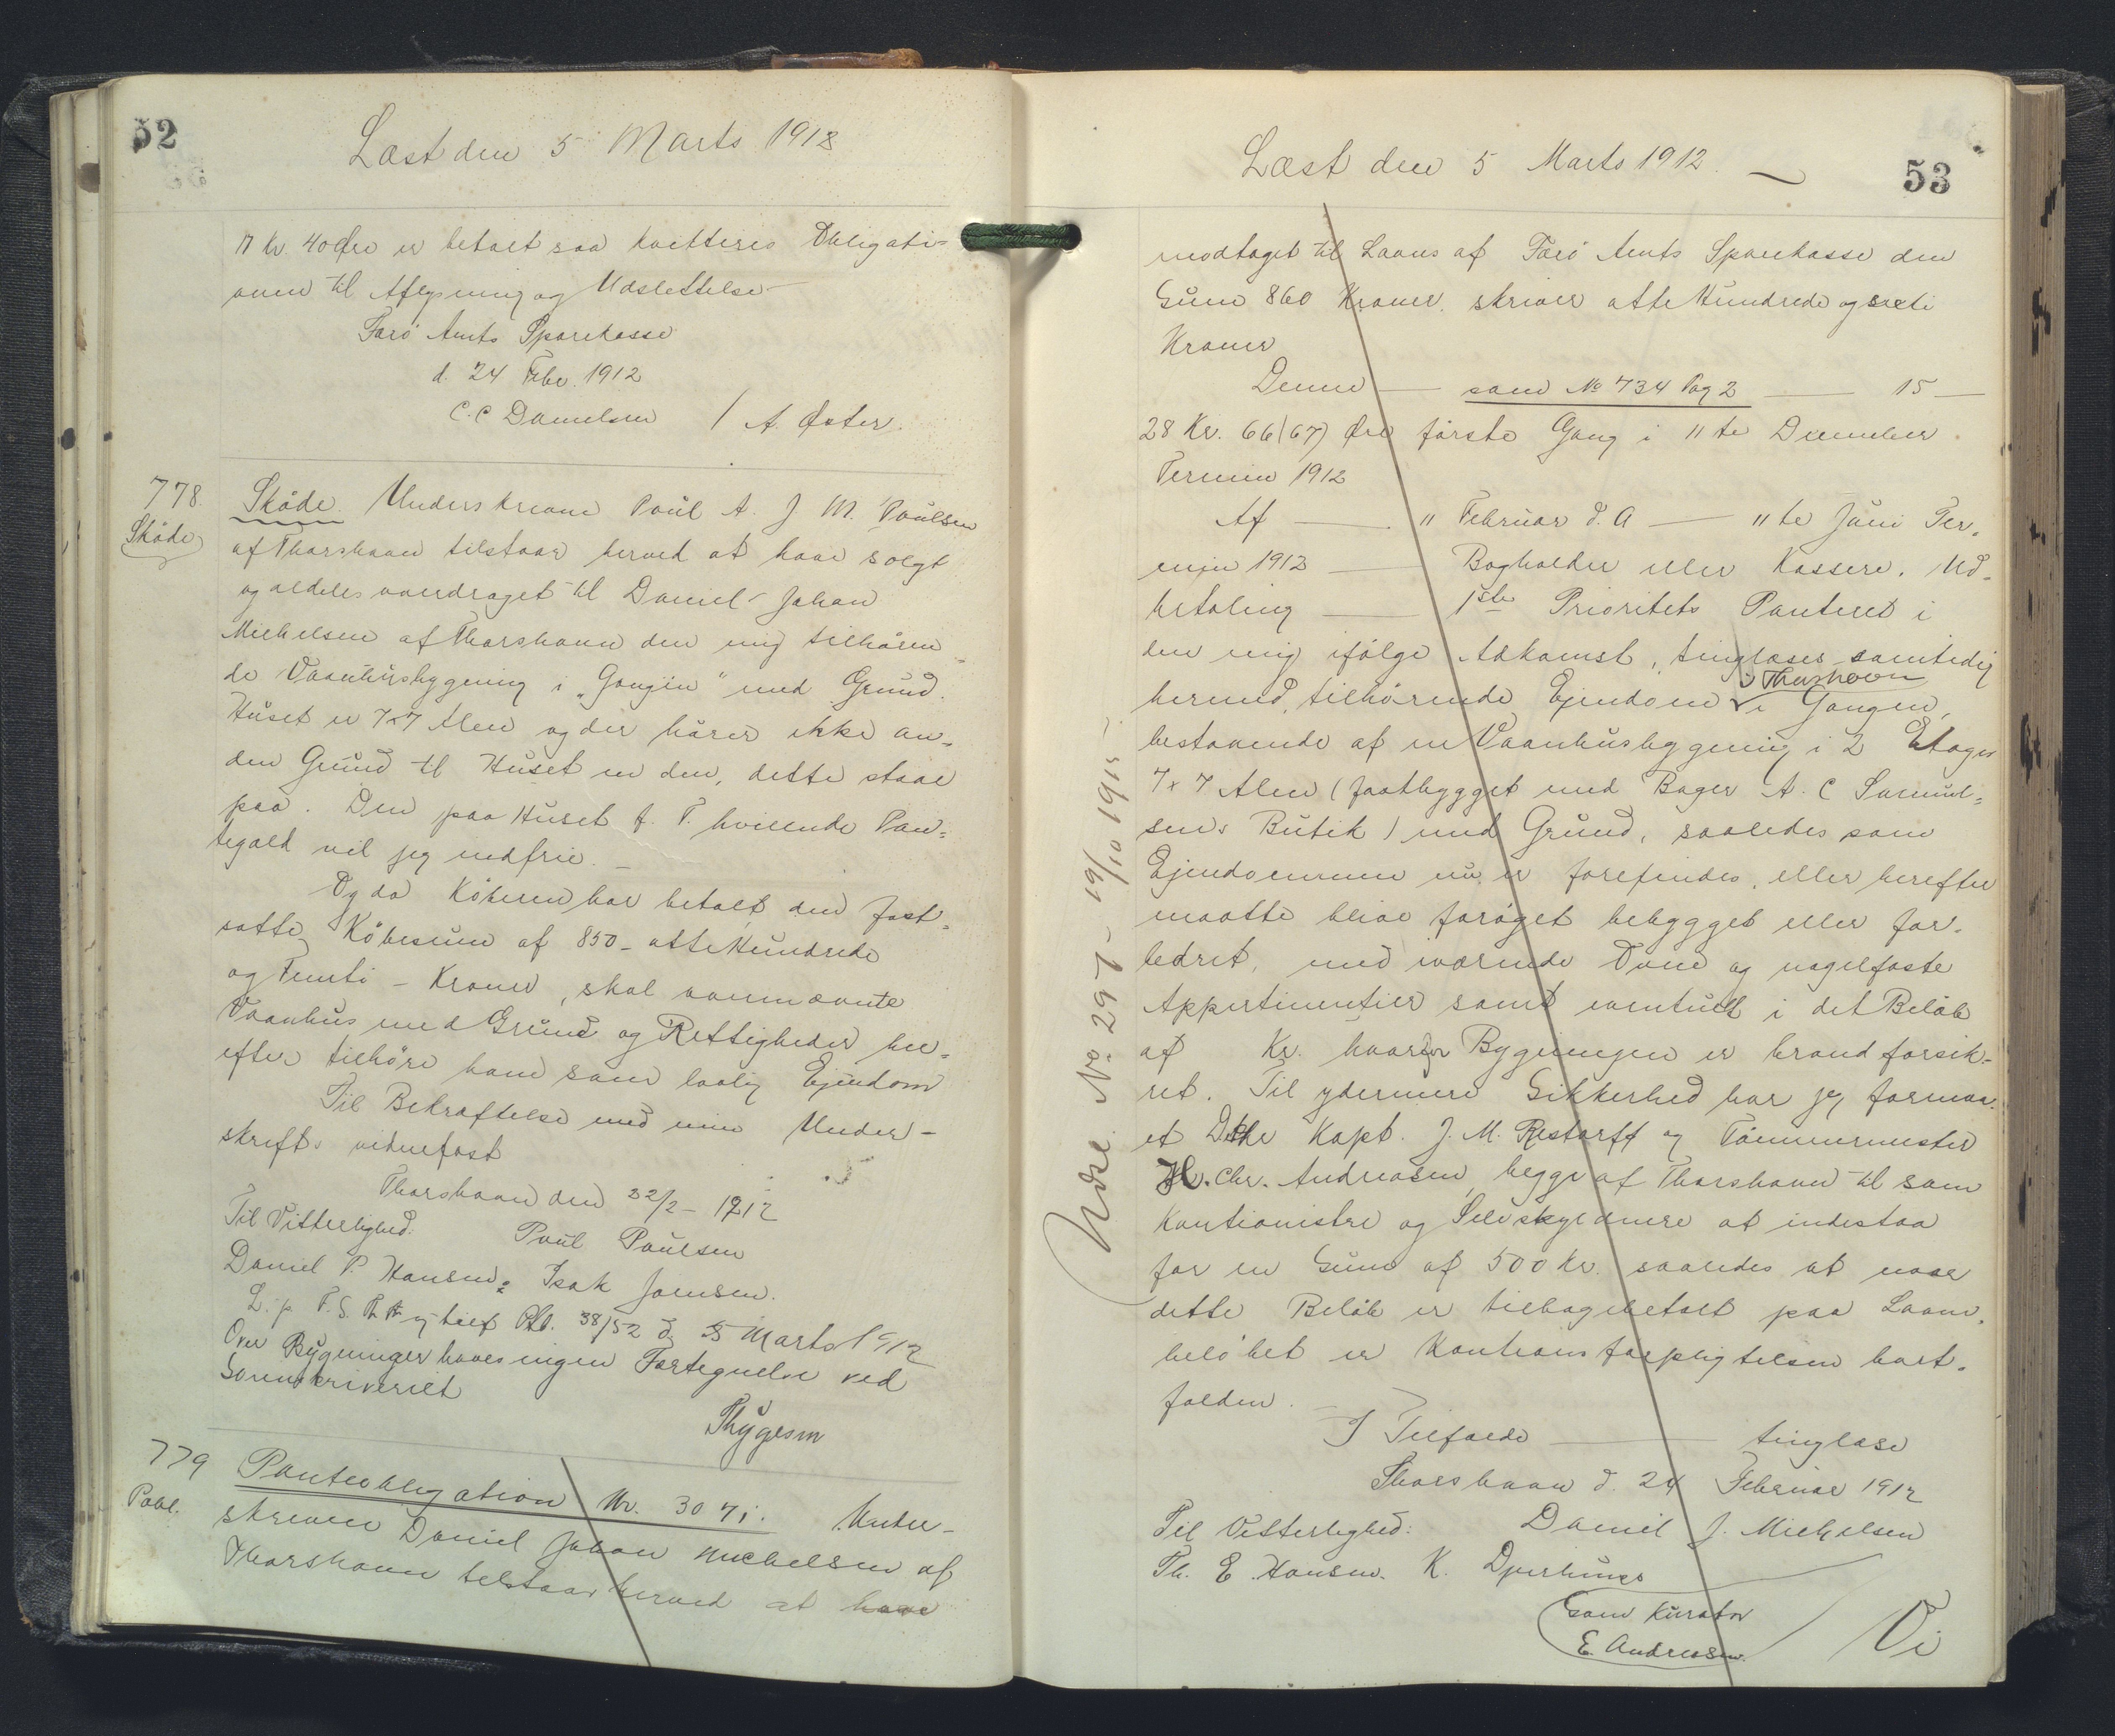 52
Læst den 5 Marts 1912
17 Kr. 40 Øre er betalt saa kvitteres Obligati-
onen til Aflysning og Udslettelse
Færö Amts Sparekasse
d. 24 Febr. 1912
C. C Danielsen / A. Øster.
778.
Sköde
Sköde. Underskrevne Poul A. J M. Poulsen
af Thorshavn tilstaar herved at have solgt
og aldeles overdraget til Daniel Johan
Michelsen af Thorshavn den mig tilhören-
de Vaanhusbygning i "Gongin" med Grund.
Huset er 7x7 Alen og der hörer ikke an-
den Grund til Huset en den, dette staar
paa. Den paa Huset f. T. hvilende Pan-
tegæld vil jeg nedfrie.
Og da Köberen har betalt den fast-
satte Köbesum af 850 - otte Hundrede
og Femti - Kroner, skal ovennævnte
Vaanhus med Grund og Rettigheder her-
efter tilhöre ham som lovlig Ejendom
Til Bekræftelse med min Under-
skrift vidnefast
Thorshavn den 22/2 - 1912
Til Vitterlighed: Poul Poulsen
Daniel P. Hansen. Isak Joensen.
L. p. F. S. R. og tilf Ptb. 38/52 d. 5 Marts 1912
Over Bygninger haves ingen Fortegnelse ved
Sorenskriveriet
Thygesen
779
Pobl.
Panteobligation Nr. 3071. Under-
skrevne Daniel Johan Michelsen af
Thorshavn tilstaar herved at have
53
Læst den 5 Marts 1912.
modtaget til Laans af Færö Amts Sparekasse den
Sum 860 Kroner. skriver otte Hundrede og sexti
Kroner
Denne — som No 734 Pag 2 — 15 —
28 Kr. 66(67) Øre förste Gang i 11te December
Termin 1912
Af — 11 Februar d. A — 11te Juni Ter-
min 1912 — Bogholder eller Kasserer. Ud-
betaling — 1ste Prioritets Panteret i
den mig ifölge Adkomst, tinglæses samtidig
i Thorshavn
hermed, tilhörende Ejendom i Gongen,
bestaaende af en Vaanhusbygning i 2 Etager
7x7 Alen (fastbygget med Bager A. C Samuel-
sens Butik) med Grund, saaledes som
Ejendommen nu er forefindes, eller herefter
maatte blive foröget bebygget eller for-
bedret, med iværende Ovne og nagelfaste
Appertinentier samt eventuelt i det Belöb
af Kr. hvorfor Bygningen er brandforsik-
ret. Til ydermere Sikkerhed har jeg formaa-
et Dhr Kapt. J. M. Restorff og Tömmermester
H. Chr. Andreasen begge af Thorshavn til som
Kautionister og Selvskyldnere at indestaa
for en Sum af 500 Kr. saaledes at naar
dette Belöb er tilbagebetalt paa Laane-
belöbet er Kautionsforpligtelsen bort-
falden.
I Tilfælde — tinglæse
Thorshavn d. 24 Februar 1912
Til Vitterlighed: Daniel J. Michelsen
Th. E. Hansen. K. Djurhuus
Som Kurator
E. Andreasen.
Vi
Udsl. No 297 - 19/10 1915